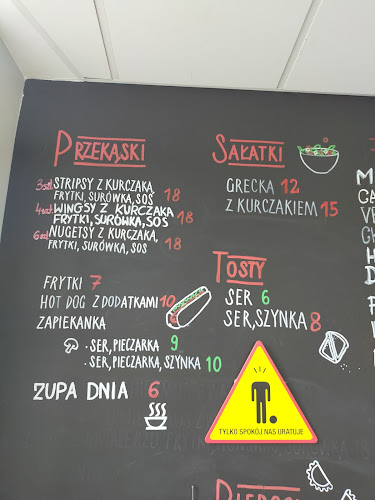 PRZEKĄSKI
3szt. STRIPSY Z KURCZAKA,
FRYTKI, SURÓWKA, SOS 18
4szt. WINGSY Z KURCZAKA
FRYTKI, SURÓWKA, SOS 18
6szt. NUGETSY Z KURCZAKA,
FRYTKI, SURÓWKA, SOS 18
FRYTKI 7
HOT DOG Z DODATKAMI 10
ZAPIEKANKA
· SER, PIECZARKA 9
· SER, PIECZARKA, SZYNKA 10
ZUPA DNIA 6
SAŁATKI
GRECKA 12
Z KURCZAKIEM 15
TOSTY
SER 6
SER, SZYNKA 8
TYLKO SPOKÓJ NAS URATUJE